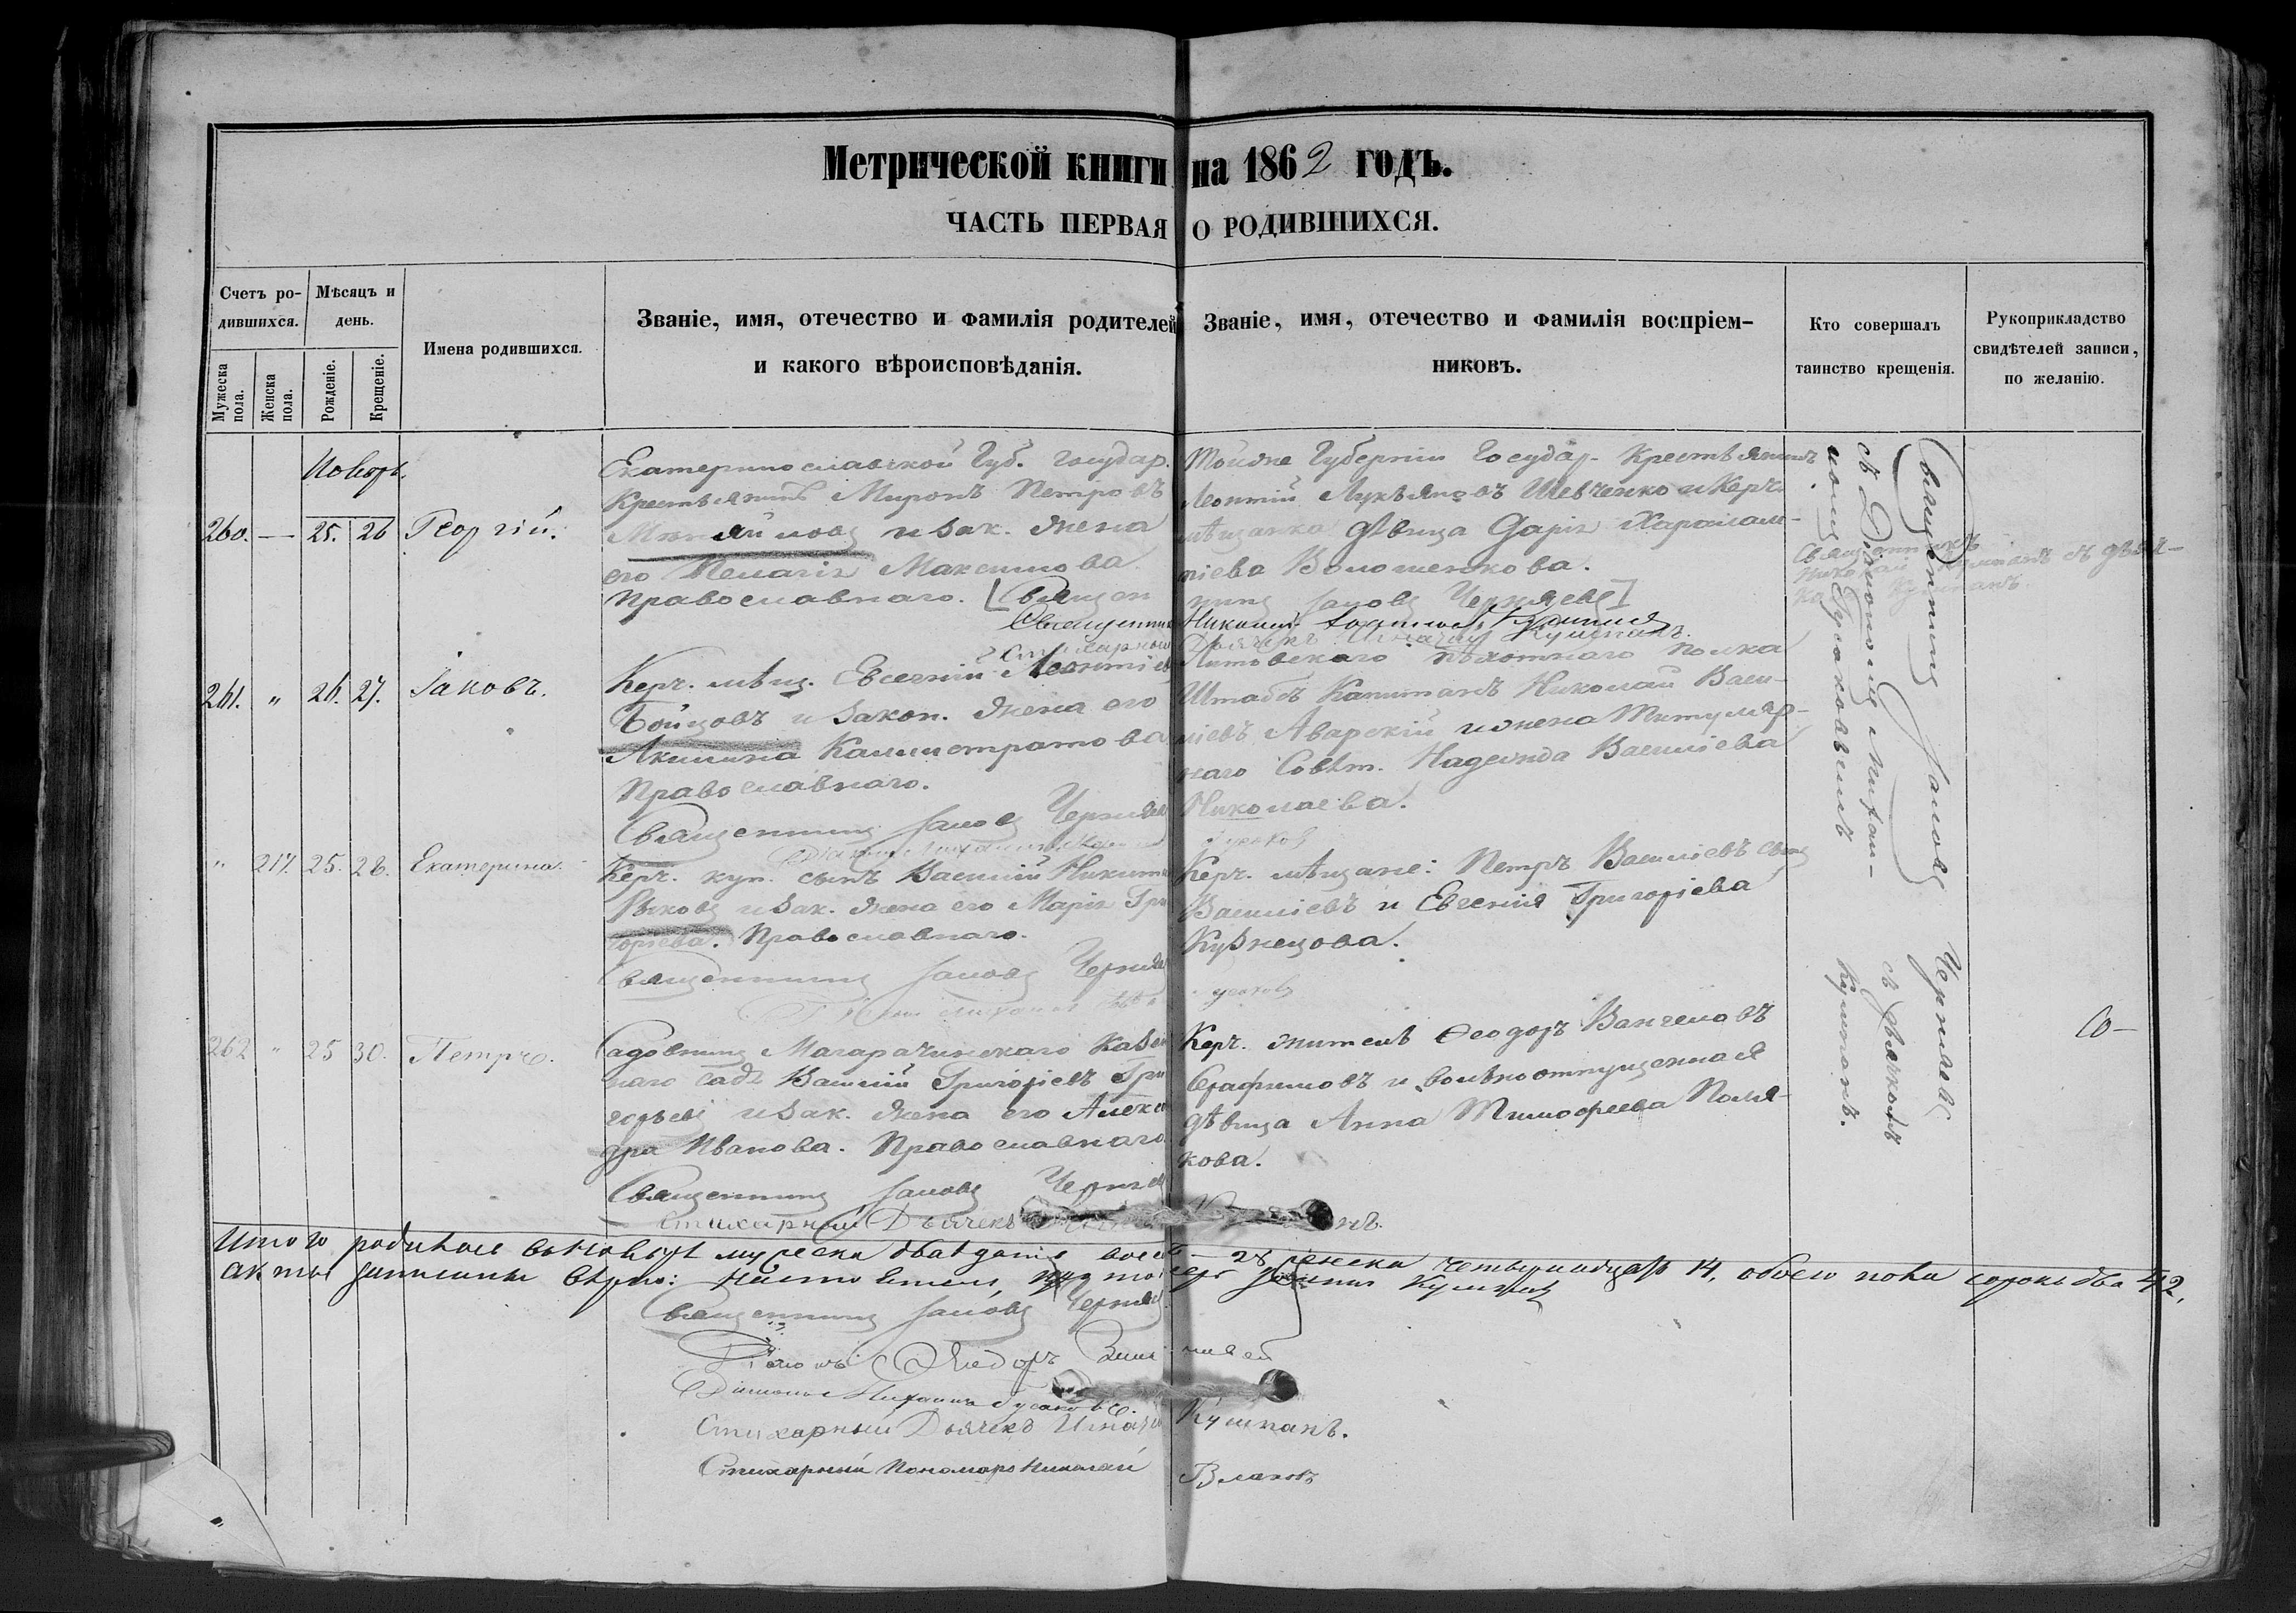 Метрической книги на 1862 годъ.
ЧАСТЬ ПЕРВАЯ О РОДИВШИХСЯ.
Счетъ ро-
дившихся.
Мужеска пола.
Женска пола.
Мѣсяцъ и
день.
Рожденіе.
Крещеніе.
Имена родившихся.
Званіе, имя, отечество и фамилія родителей
и какого вѣроисповѣданія.
Званіе, имя, отечество и фамилія воспріем-
никовъ.
Кто совершалъ
таинство крещенія.
Рукоприкладство
свидѣтелей записи,
по желанію.
Ноябрь.
260. — 25. 26 Георгій.
Екатеринославской Губ. Государ.
Крестьянинъ Миронъ Петровъ
и зак. жена
его Пелагія Максимова
православнаго. [Священ
Тойже Губерніи Государ- Крестьянинъ
Леонтій Лукьяновъ Шевченко и Керч.
мѣщанка дѣвица Дарія Харалам-
піева Волошенкова.
никъ Іаковъ Черняевъ]
Священникъ Николай
Дьячекъ Игнатій Кушнанъ.
261. " 26. 27. Іаковъ.
Керч. мѣщ. Евсегній Леонтіев
Бойцовъ и закон. жена его
Акилина Каллистратова
Православнаго.
Священникъ Іаковъ Черняев
Литовскаго пѣхотнаго полка
Штабсъ Капитанъ Николай Васи-
ліевъ Аварскій и жена Титуляр-
наго Совѣт. Надежда Василіева
Николаева.
" 217. 25. 28. Екатерина.
Керч. куп. сынъ Василій Никити
и зак. жена его Марія Гри
горіева. Православнаго.
Священникъ Іаковъ Черняев
Керч. мѣщане: Петръ Василіевъ сынъ
Василіевъ и Евгенія Григоріева
Кузнецова.
262 " 25 30. Петръ.
Садовникъ Магарачинскаго Казен
наго сада Василій Григоріевъ Гри
горьевъ и зак. жена его Алексан
дра Иванова. Православнаго
Священникъ Іаковъ Черняев
Стихарный Дьячекъ
Керч. житель Ѳеодоръ Вангеловъ
Серафимовъ и вольноотпущенная
дѣвица Анна Тимофеева Поля-
кова.
Священникъ Іаковъ Черняевъ
съ Діакономъ Михаи-
ломъ Гусаковымъ
съ дьячкомъ
Кушнанъ.
Итого родилось въ Ноябрѣ мужеска двадцать восемь — 28 женска четырнадцать 14, обоего пола сорокъ два 42.
акты записаны вѣрно:
Священникъ Іаковъ Черняев
Діаконъ Михаилъ Гусаковъ.
Стихарный Дьячекъ Игнатій Кушнанъ.
Стихарный Пономарь Николай Влаховъ